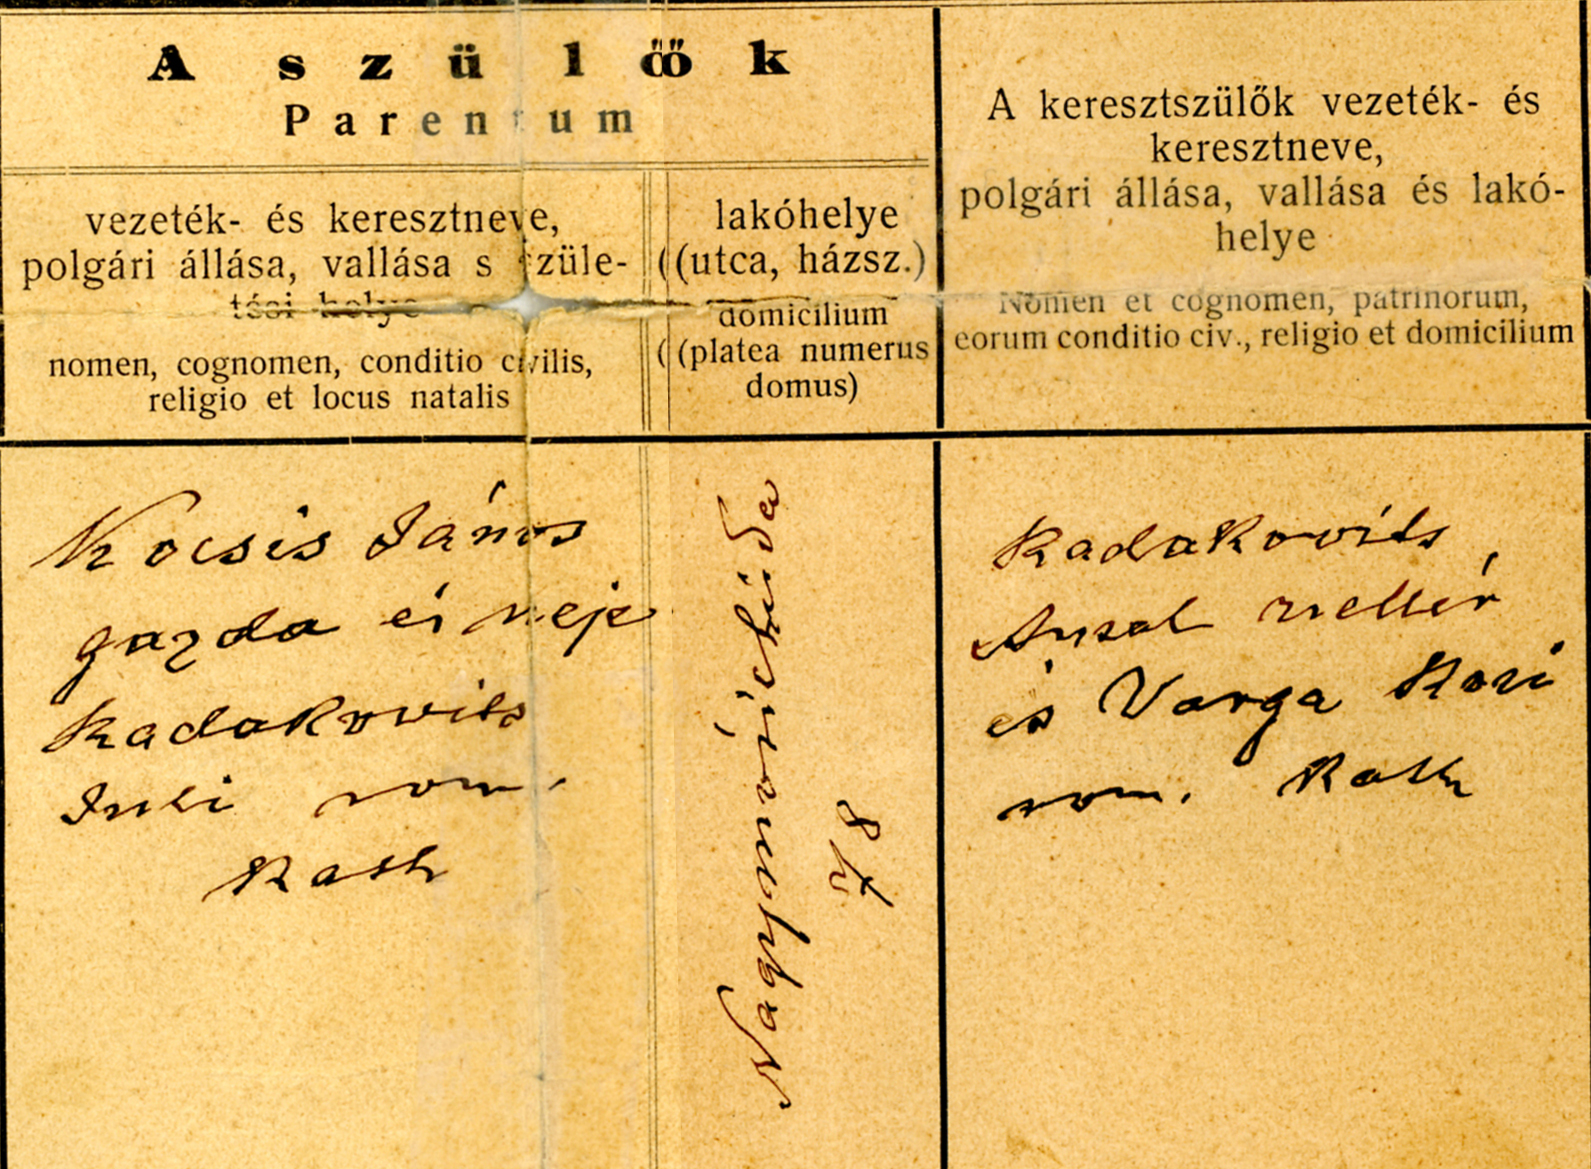 A szülők
Parentum
vezeték- és keresztneve,
polgári állása, vallása s szüle-
tési helye
nomen, cognomen, conditio civilis,
religio et locus natalis
lakóhelye
(utca, házsz.)
domicilium
(platea numerus
domus)
A keresztszülők vezeték- és
keresztneve,
polgári állása, vallása és lakó-
helye
Nomen et cognomen, patrinorum,
eorum conditio civ., religio et domicilium
Kocsis János
gazda és neje
Radakovits
Juli rom.
Kath
78
Radakovits
Antal zsellér
és Varga Rozi
rom. Kath